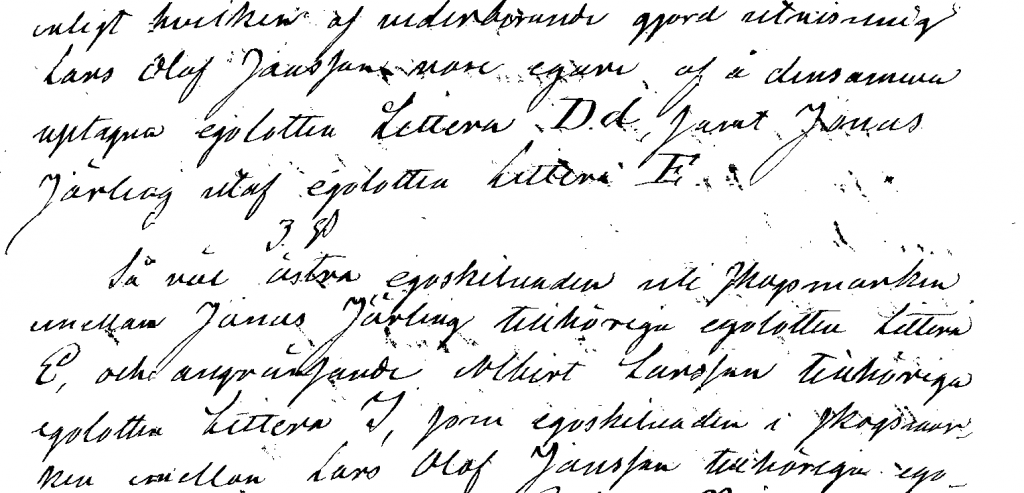 enligt hvilken af vederbörande gjord utvisning
Lars Olof Jansson vore egare af å densamma
upptagna egolotten Littera D.d, samt Jonas
Järling utaf egolotten Littera E.
3. §
Så väl östra egoskilnaden uti skogsmarken
emellan Jonas Järling tillhöriga egolotten Littera
E, och angränsande Albert Larsson tillhöriga
egolotten Littera I, som egoskilnaden i skogsmar-
ken emellan Lars Olof Jansson tillhöriga ego-